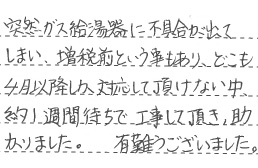 突然ガス給湯器に不具合が出て
しまい、増税前という事もあり、どこも
4月以降しか対応して頂けない中、
約1週間待ちで工事して頂き、助
かりました。 有難うございました。